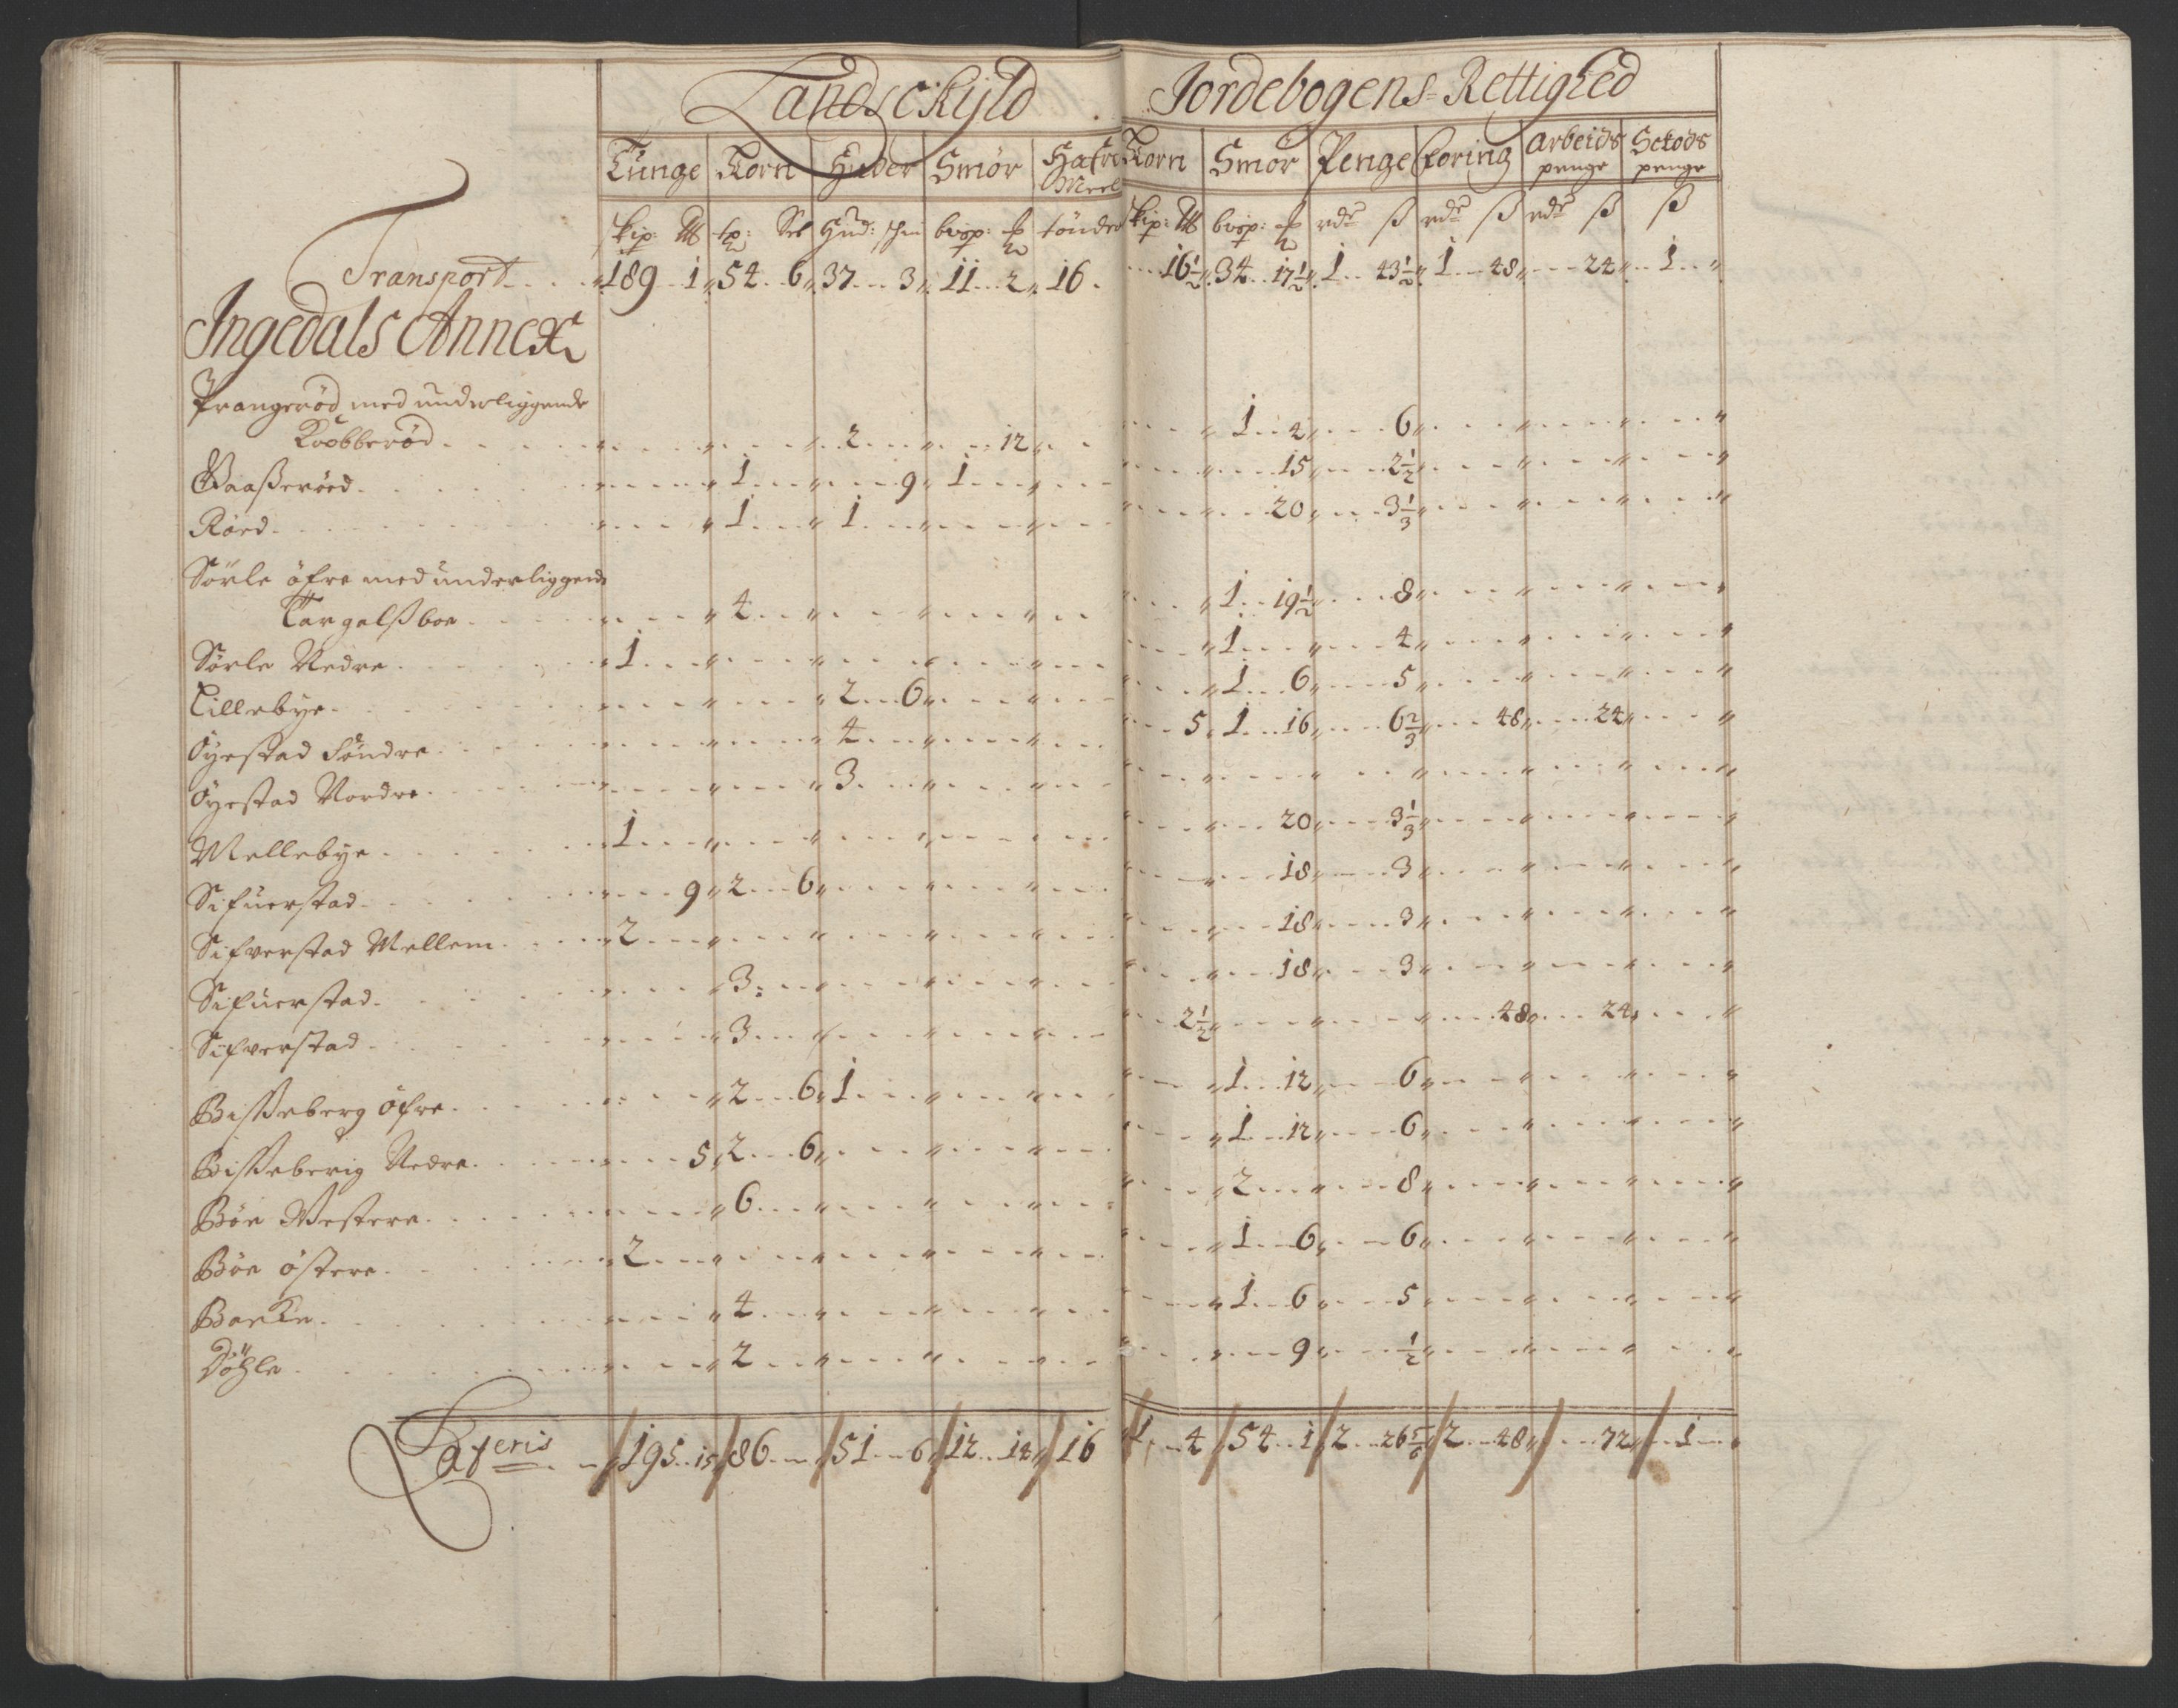 Landschyld Jordebogens Rettighed
Tunge Korn Huder Smör Hafre Meel Korn Smör Penge foring Arbeids penge Schods penge
skip: ℔ lp: Set Hud: schin bvsp: tönder skip: ℔ bvsp: rdr ß rdr ß rdr ß ß
Transport 189 1 54 6 37 3 11 2 16 16½ 34 17½ 1 43½ 1 48 24 1
Ingedals Annex
Prangeröd med underliggende
Knobberöd 2 12 1 4 6
Gaaßeröed 1 9 1 15 2½
Röed 1 1 20 3⅓
Sörle öfre med underliggende
Targalßboe 4 1 19½ 8
Sörle Nedre 1 1 4
Lillebye 2 6 1 6 5
Öyestad Söndre 4 5 1 16 6⅔ 48 24
Öyestad Nordre 3
Mellebye 1 20 3⅓
Sifuerstad 9 2 6 18 3
Sifverstad Mellem 2 18 3
Sifuerstad 3 18 3
Sifverstad 3 2½ 48 24
Bißeberg öfre 2 6 1 1 12 6
Bißeberig Nedre 5 2 6 1 12 6
Böe Vestere 6 2 8
Böe östere 2 1 6 6
Bakke 4 1 6 5
Döhle 2 9 ½
Lateris 195 15 86 51 6 12 14 16 1 4 54 1 2 26⅚ 2 48 72 1